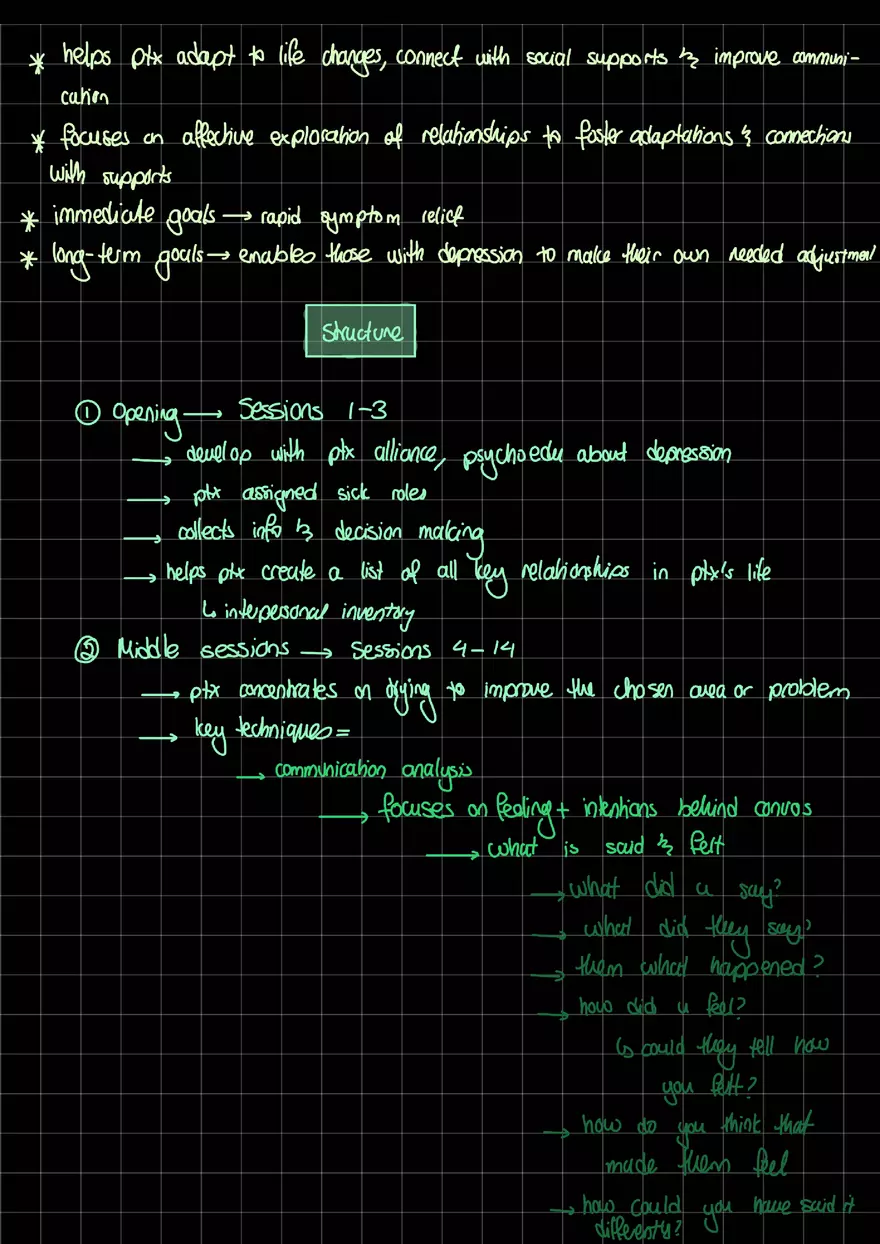 * helps ptx adapt to life changes, connect with social supports & improve communi-
cation
* focuses on affective exploration of relationships to foster adaptations & connections
with supports
* immediate goals → rapid symptom relief
* long-term goals → enables those with depression to make their own needed adjustment
Structure
① Opening → Sessions 1-3
→ develop with ptx alliance, psychoedu about depression
→ ptx assigned sick roles
→ collects info & decision making
→ helps ptx create a list of all key relationships in ptx's life
↳ interpersonal inventory
② Middle sessions → Sessions 4-14
→ ptx concentrates on trying to improve the chosen area or problem
→ key techniques =
→ communication analysis
→ focuses on feeling + intentions behind convos
→ what is said & felt
→ what did u say?
→ what did they say?
→ them what happened?
→ how did u feel?
↳ could they tell how
you felt?
→ how do you think that
made them feel
→ how could you have said it
differently?